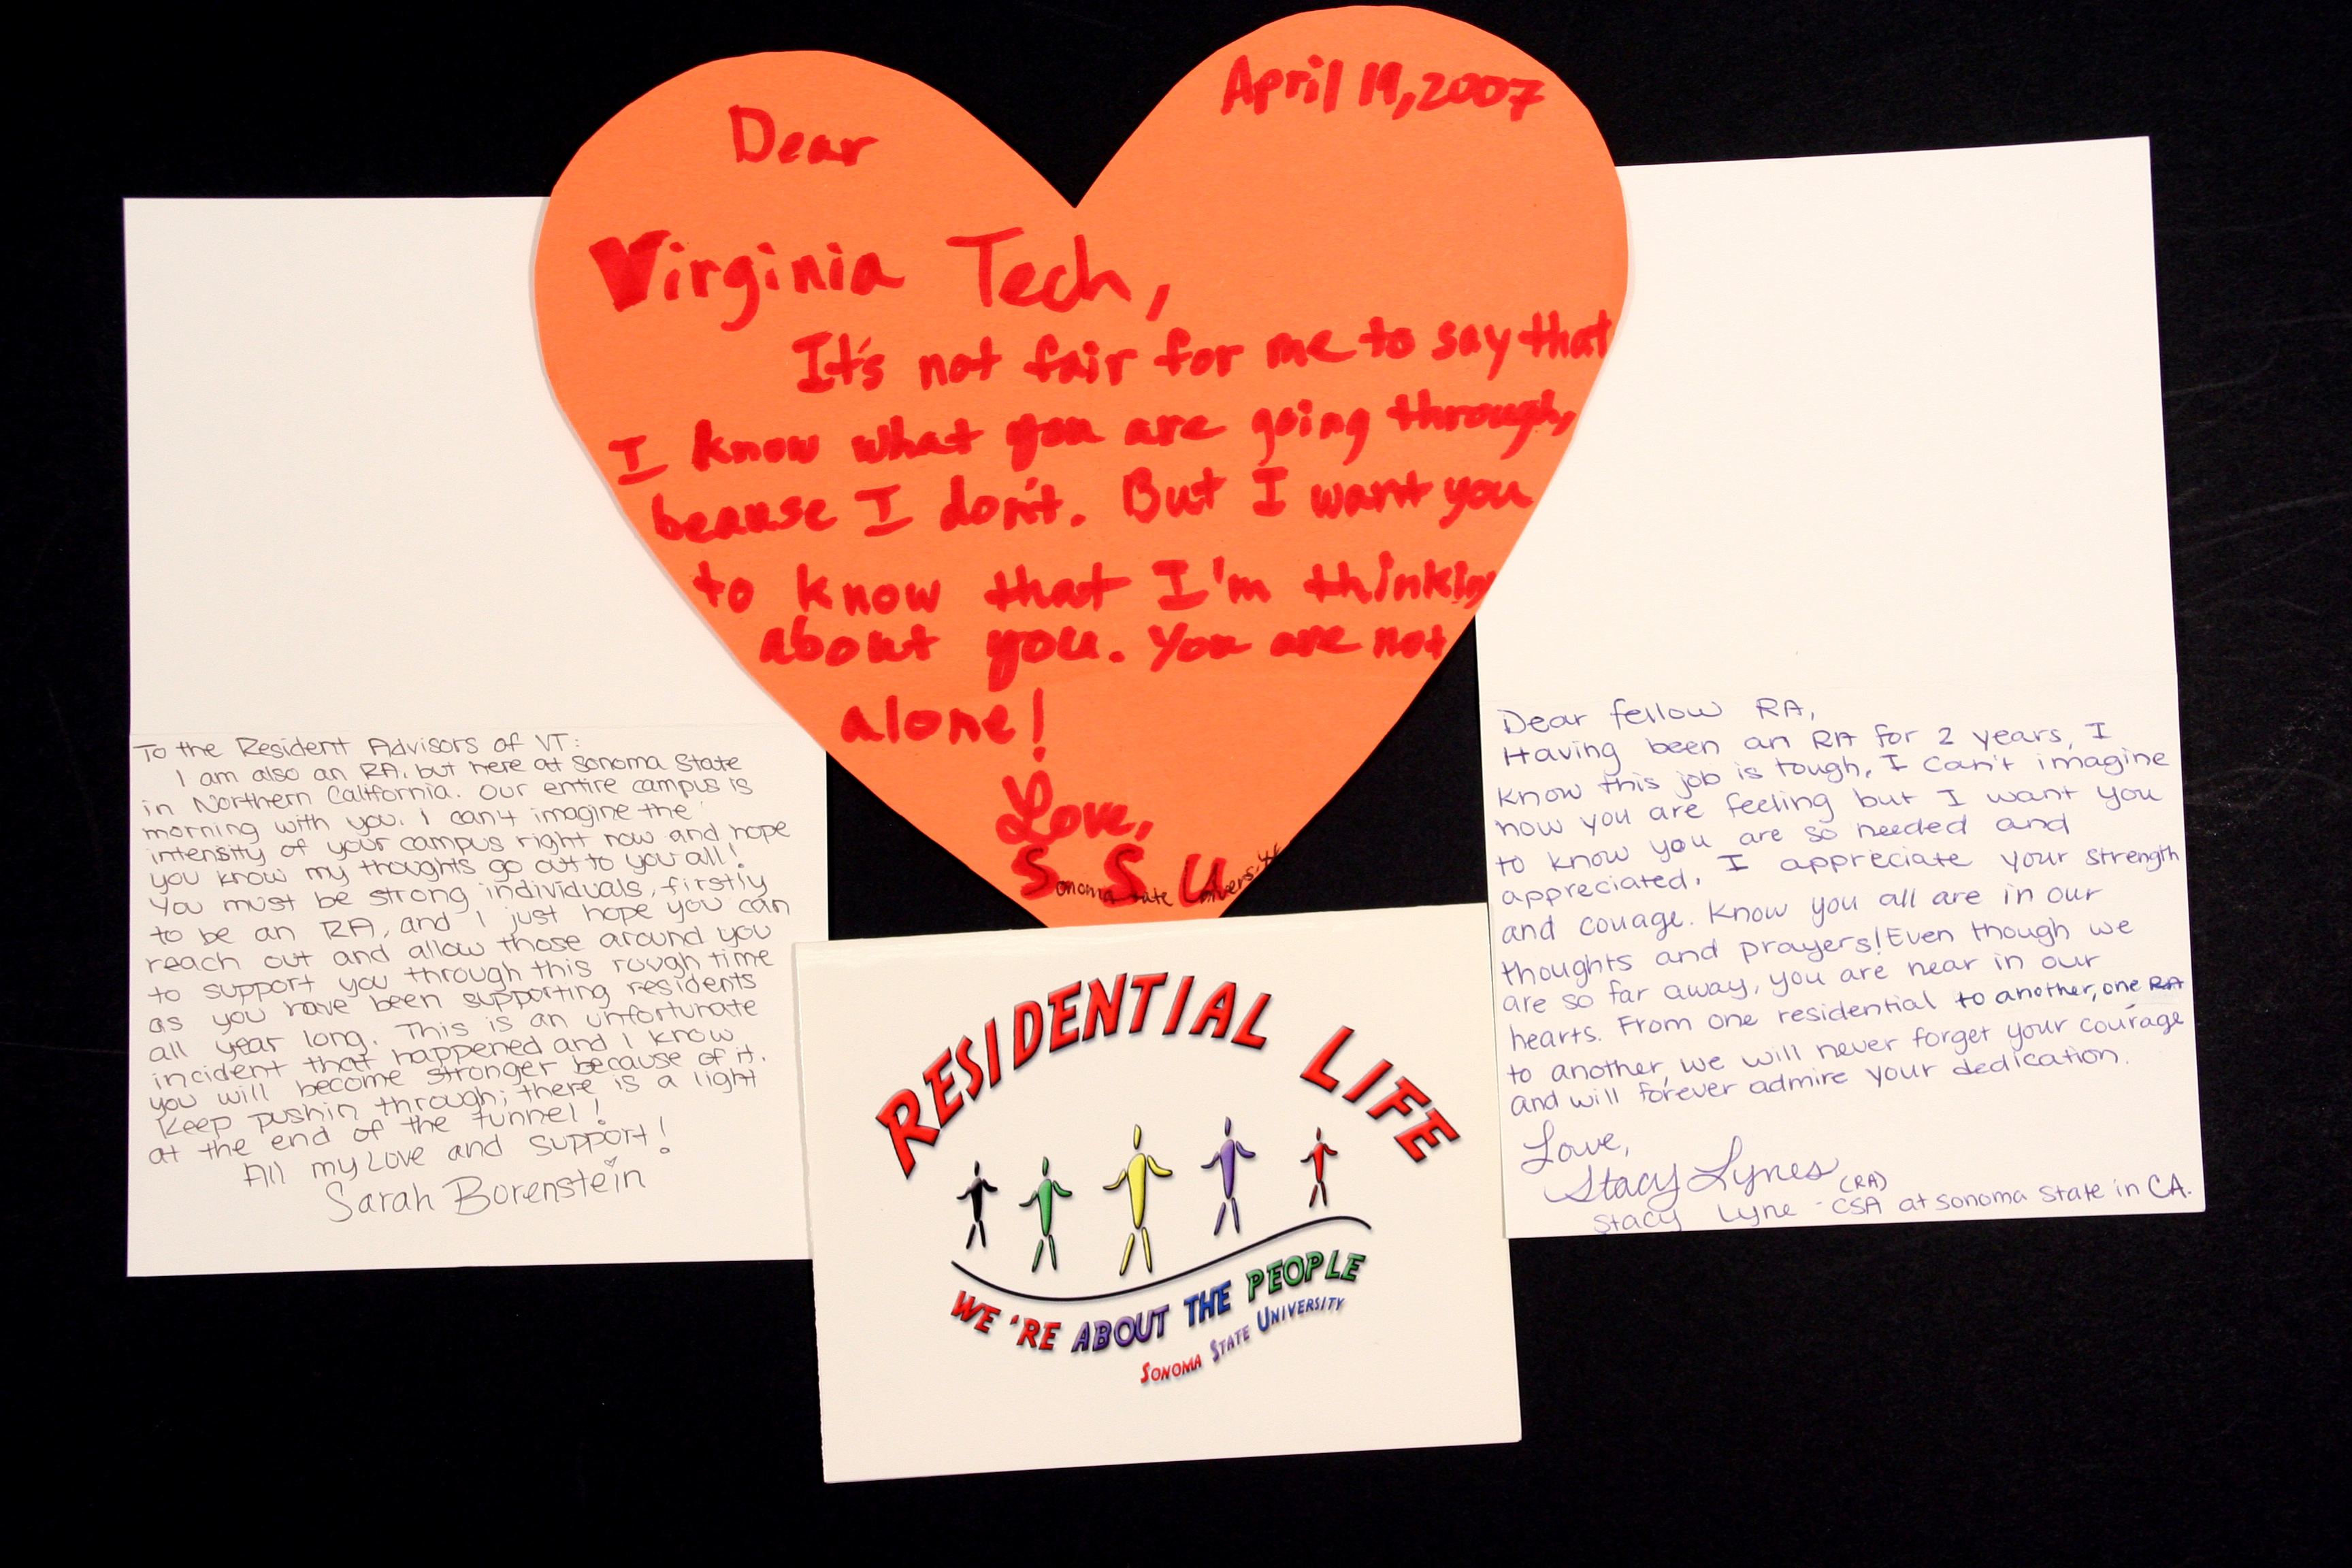 April 19, 2007
Dear
Virginia Tech,
It's not fair for me to say that
I know what you are going through,
beause I don't. But I want you
to know that I'm thinkin
about you. You are not
alone!
Love,
Sonoma State University
To the Resident Advisors of VT:
I am also an RA, but here at Sonoma State
in Northern California. Our entire campus is
morning with you. I can't imagine the
intensity of your campus right now and hope
you know my thoughts go out to you all!
You must be strong individuals, firstly
to be an RA, and I just hope you can
reach out and allow those around you
to support you through this rough time
as you have been supporting residents
all year long. This is an unfortunate
incident that happened and I know
you will become stronger because of it.
Keep pushin through; there is a light
at the end of the tunnel!
All my Love and support!
Sarah Borenstein
RESIDENTIAL LIFE
WE'RE ABOUT THE PEOPLE
SONOMA STATE UNIVERSITY
Dear fellow RA,
Having been an RA for 2 years, I
know this job is tough, I can't imagine
how you are feeling but I want you
to know you are so needed and
appreciated. I appreciate your strength
and couage. Know you all are in our
thoughts and prayers! Even though we
are so far away, you are near in our
hearts. From one residential to another, one RA
to another, we will never forget your courage
and will forever admire your dedication.
Love,
Stacy Lynes
(RA)
Stacy Lyne - CSA at Sonoma State in CA.